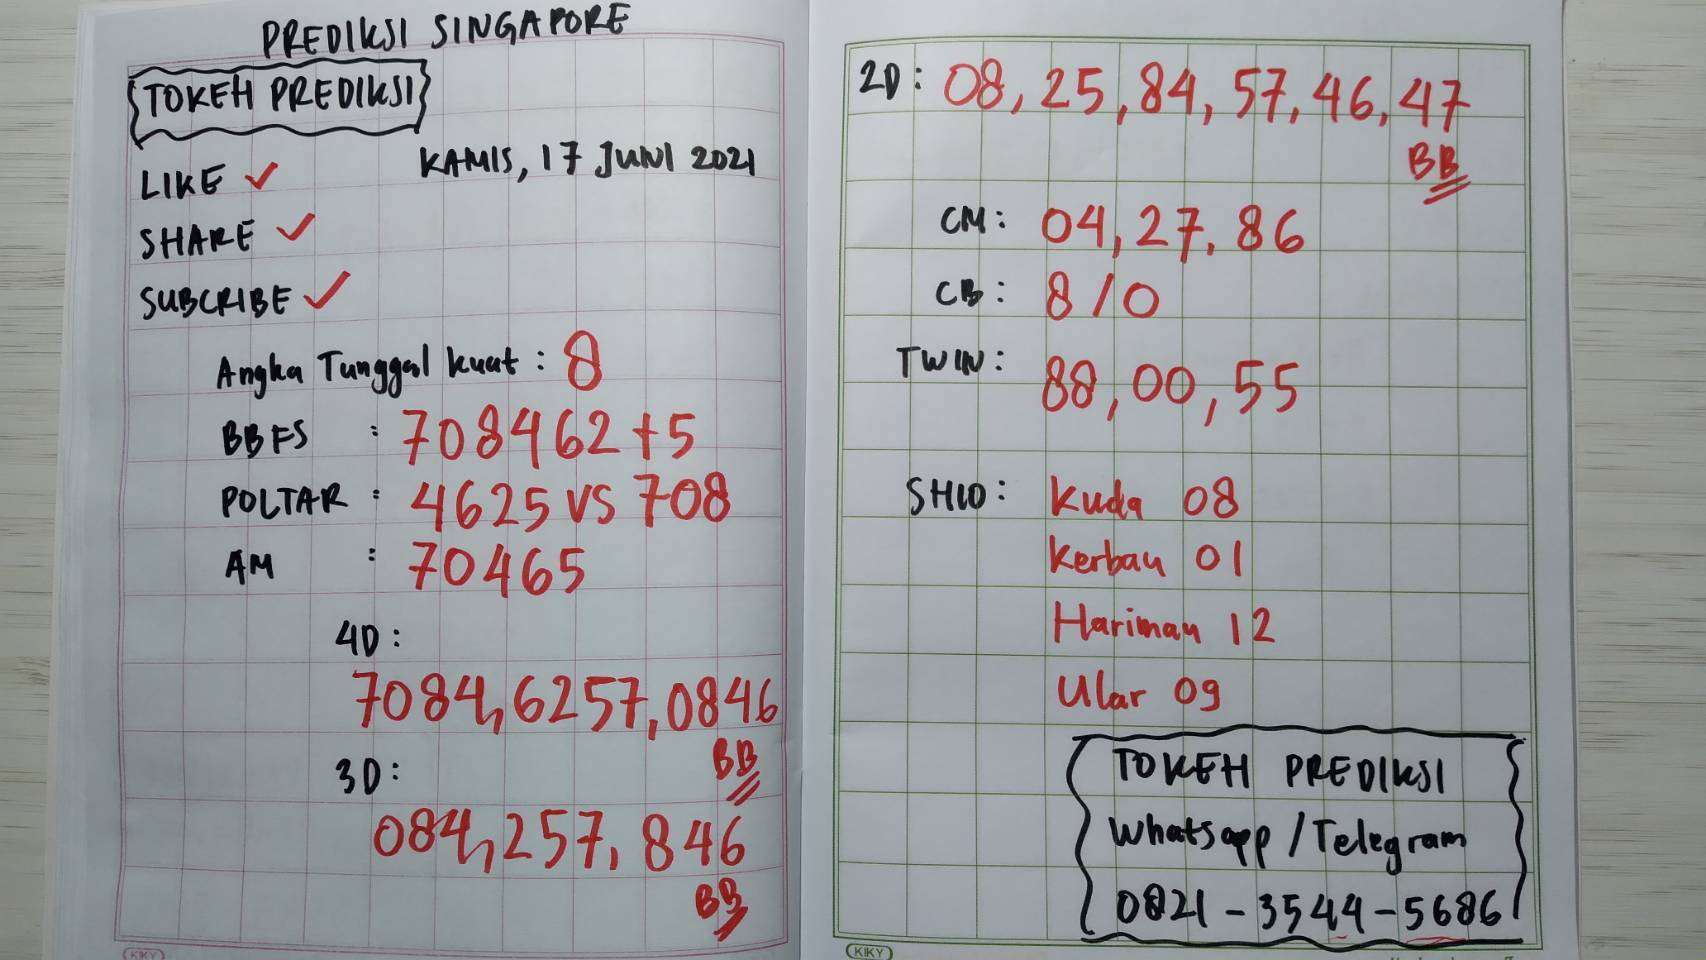 PREDIKSI SINGAPORE
TOKEH PREDIKSI
KAMIS, 17 JUNI 2021
LIKE ✓
SHARE ✓
SUBCRIBE ✓
Angka Tunggal kuat : 8
BBFS : 708462+5
POLTAR : 4625 VS 708
AM : 70465
4D:
7084, 6257, 0846
BB
3D:
084, 257, 846
BB
KIKY
2D: 08, 25, 84, 57, 46, 47
BB
CM: 04, 27, 86
CB: 8/0
TWIN: 88, 00, 55
SHIO: Kuda 08
Kerbau 01
Harimau 12
Ular 09
TOKEH PREDIKSI
Whatsapp/Telegram
0821-3544-5686
KIKY